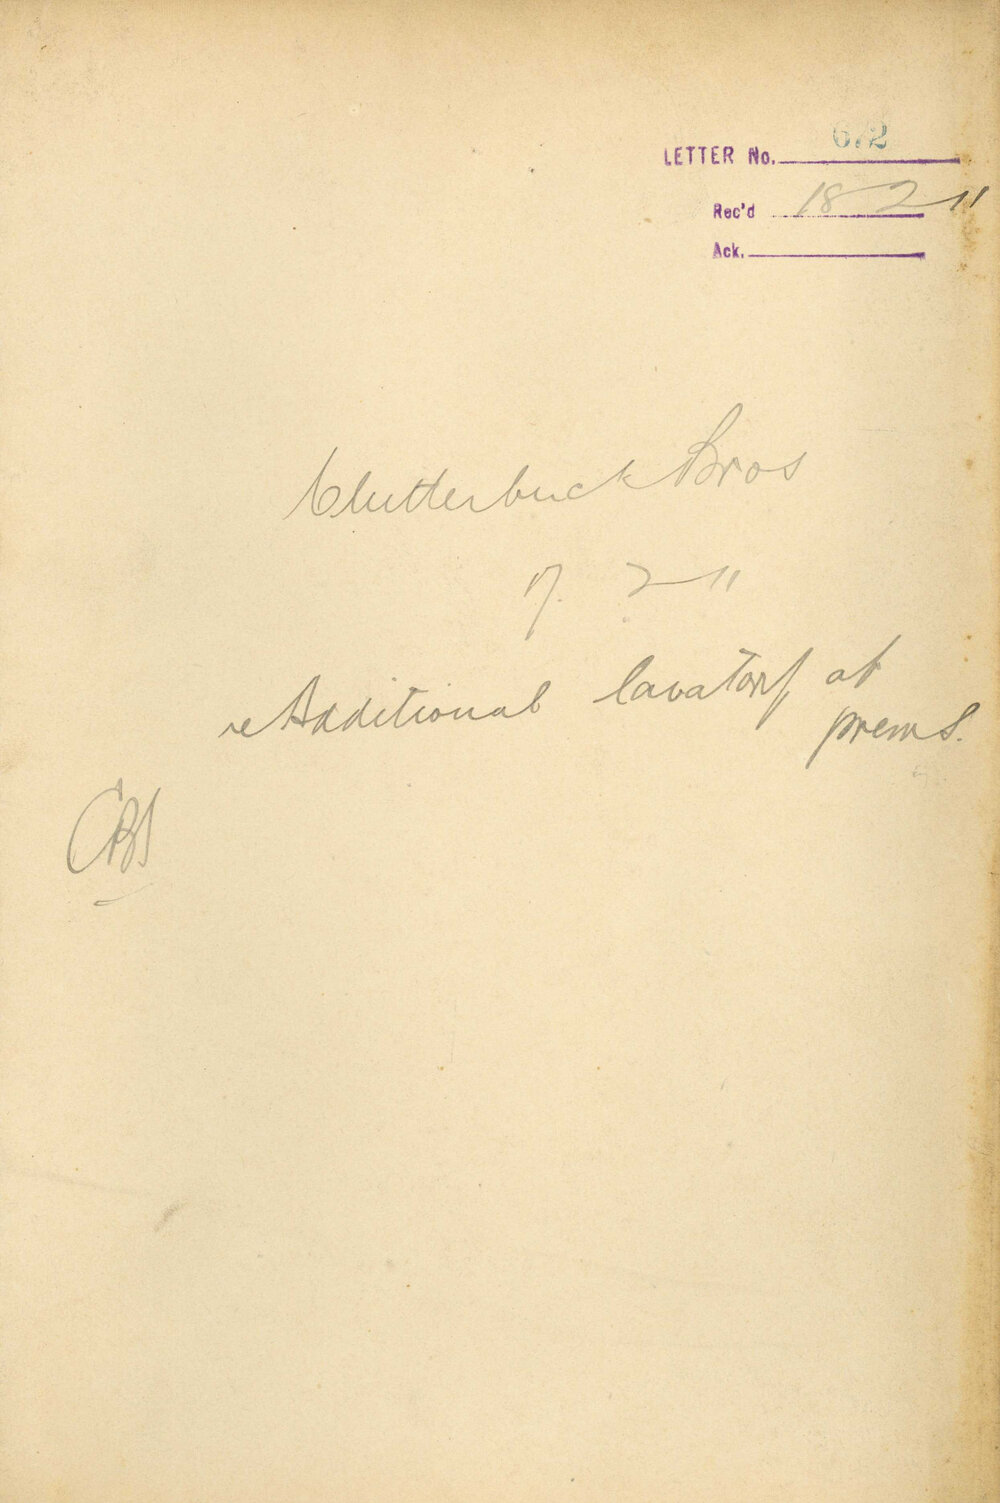 LETTER No. 672
Rec'd 18 2 11
Ack.
Clutterbuck Bros
17. 2 11
re Additional lavatory at
prems.